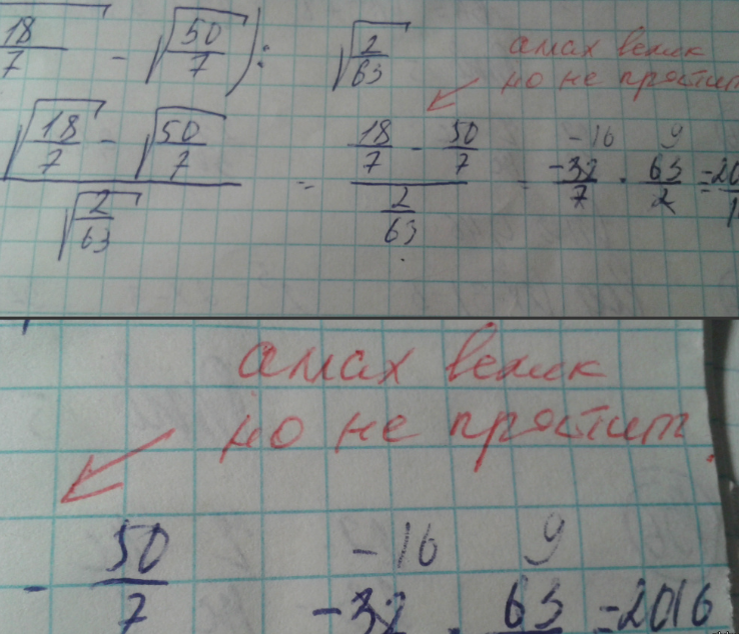 √18/7 - √50/7 ) : √2/63
амах велик
но не простит
(√18/7 - √50/7) / √2/63 = (18/7 - 50/7) / 2/63 = -32/7 · 63/2 = -20
-16 9
амах велик
но не простит.
- 50/7
-16 9
-32 · 63 = -2016